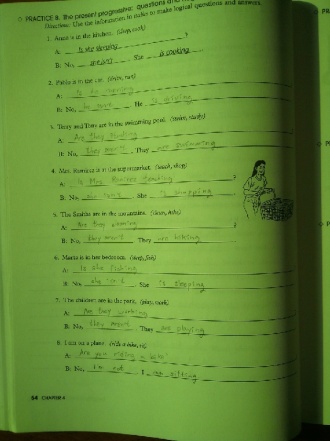 PRACTICE 8. The present progressive: questions and
Directions: Use the information in italics to make logical questions and answers.
1. Anne is in the kitchen. (sleep, cook)
A: Is she sleeping ?
B: No, she isn't . She is cooking .
2. is in the car. (swim,
A: Is he
B: No, . He is driving .
3. Terry and Tony are in the swimming pool. (swim, study)
A: Are they studing
B: No, they . They are swimming
4. Mrs. Ramirez is in the supermarket. (teach, shop)
A: Is Mrs. Ramirez teaching ?
B: No, . She is shopping .
5. The Smiths are in the mountains. hike)
A: Are they
B: No, they aren't . They are hiking
6. Maria is in her bedroom. (sleep, fish)
A: Is she fishing
B: No, . She is sleeping
7. The children are in the park. (play, work)
A: Are they working
B: No, they aren't . They are playing
8. I am on a plane. (ride a bike, sit)
A: Are you riding a bike
B: No, . I
54 CHAPTER 4